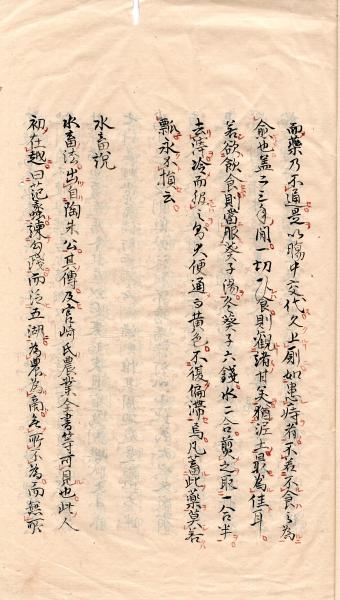 而藥乃不通是以腸中交代久上創如患痔者不若不食之為
愈也蓋二三年間一切不食則觀諸甘芙猶泥土最為佳耳
若欲飲食則當服葵子湯久葵子六錢水二合煎之取一合半
去滓冷而服之則大便通而黄色不復偏滯焉凡蓄此藥莫若
瓢永不損云
水畜說
水畜法出自陶朱公其傳及宮崎氏農業全書等可見也此人
初在越曰范蠡諫勾踐而泛五湖為農為商無所不為而無所